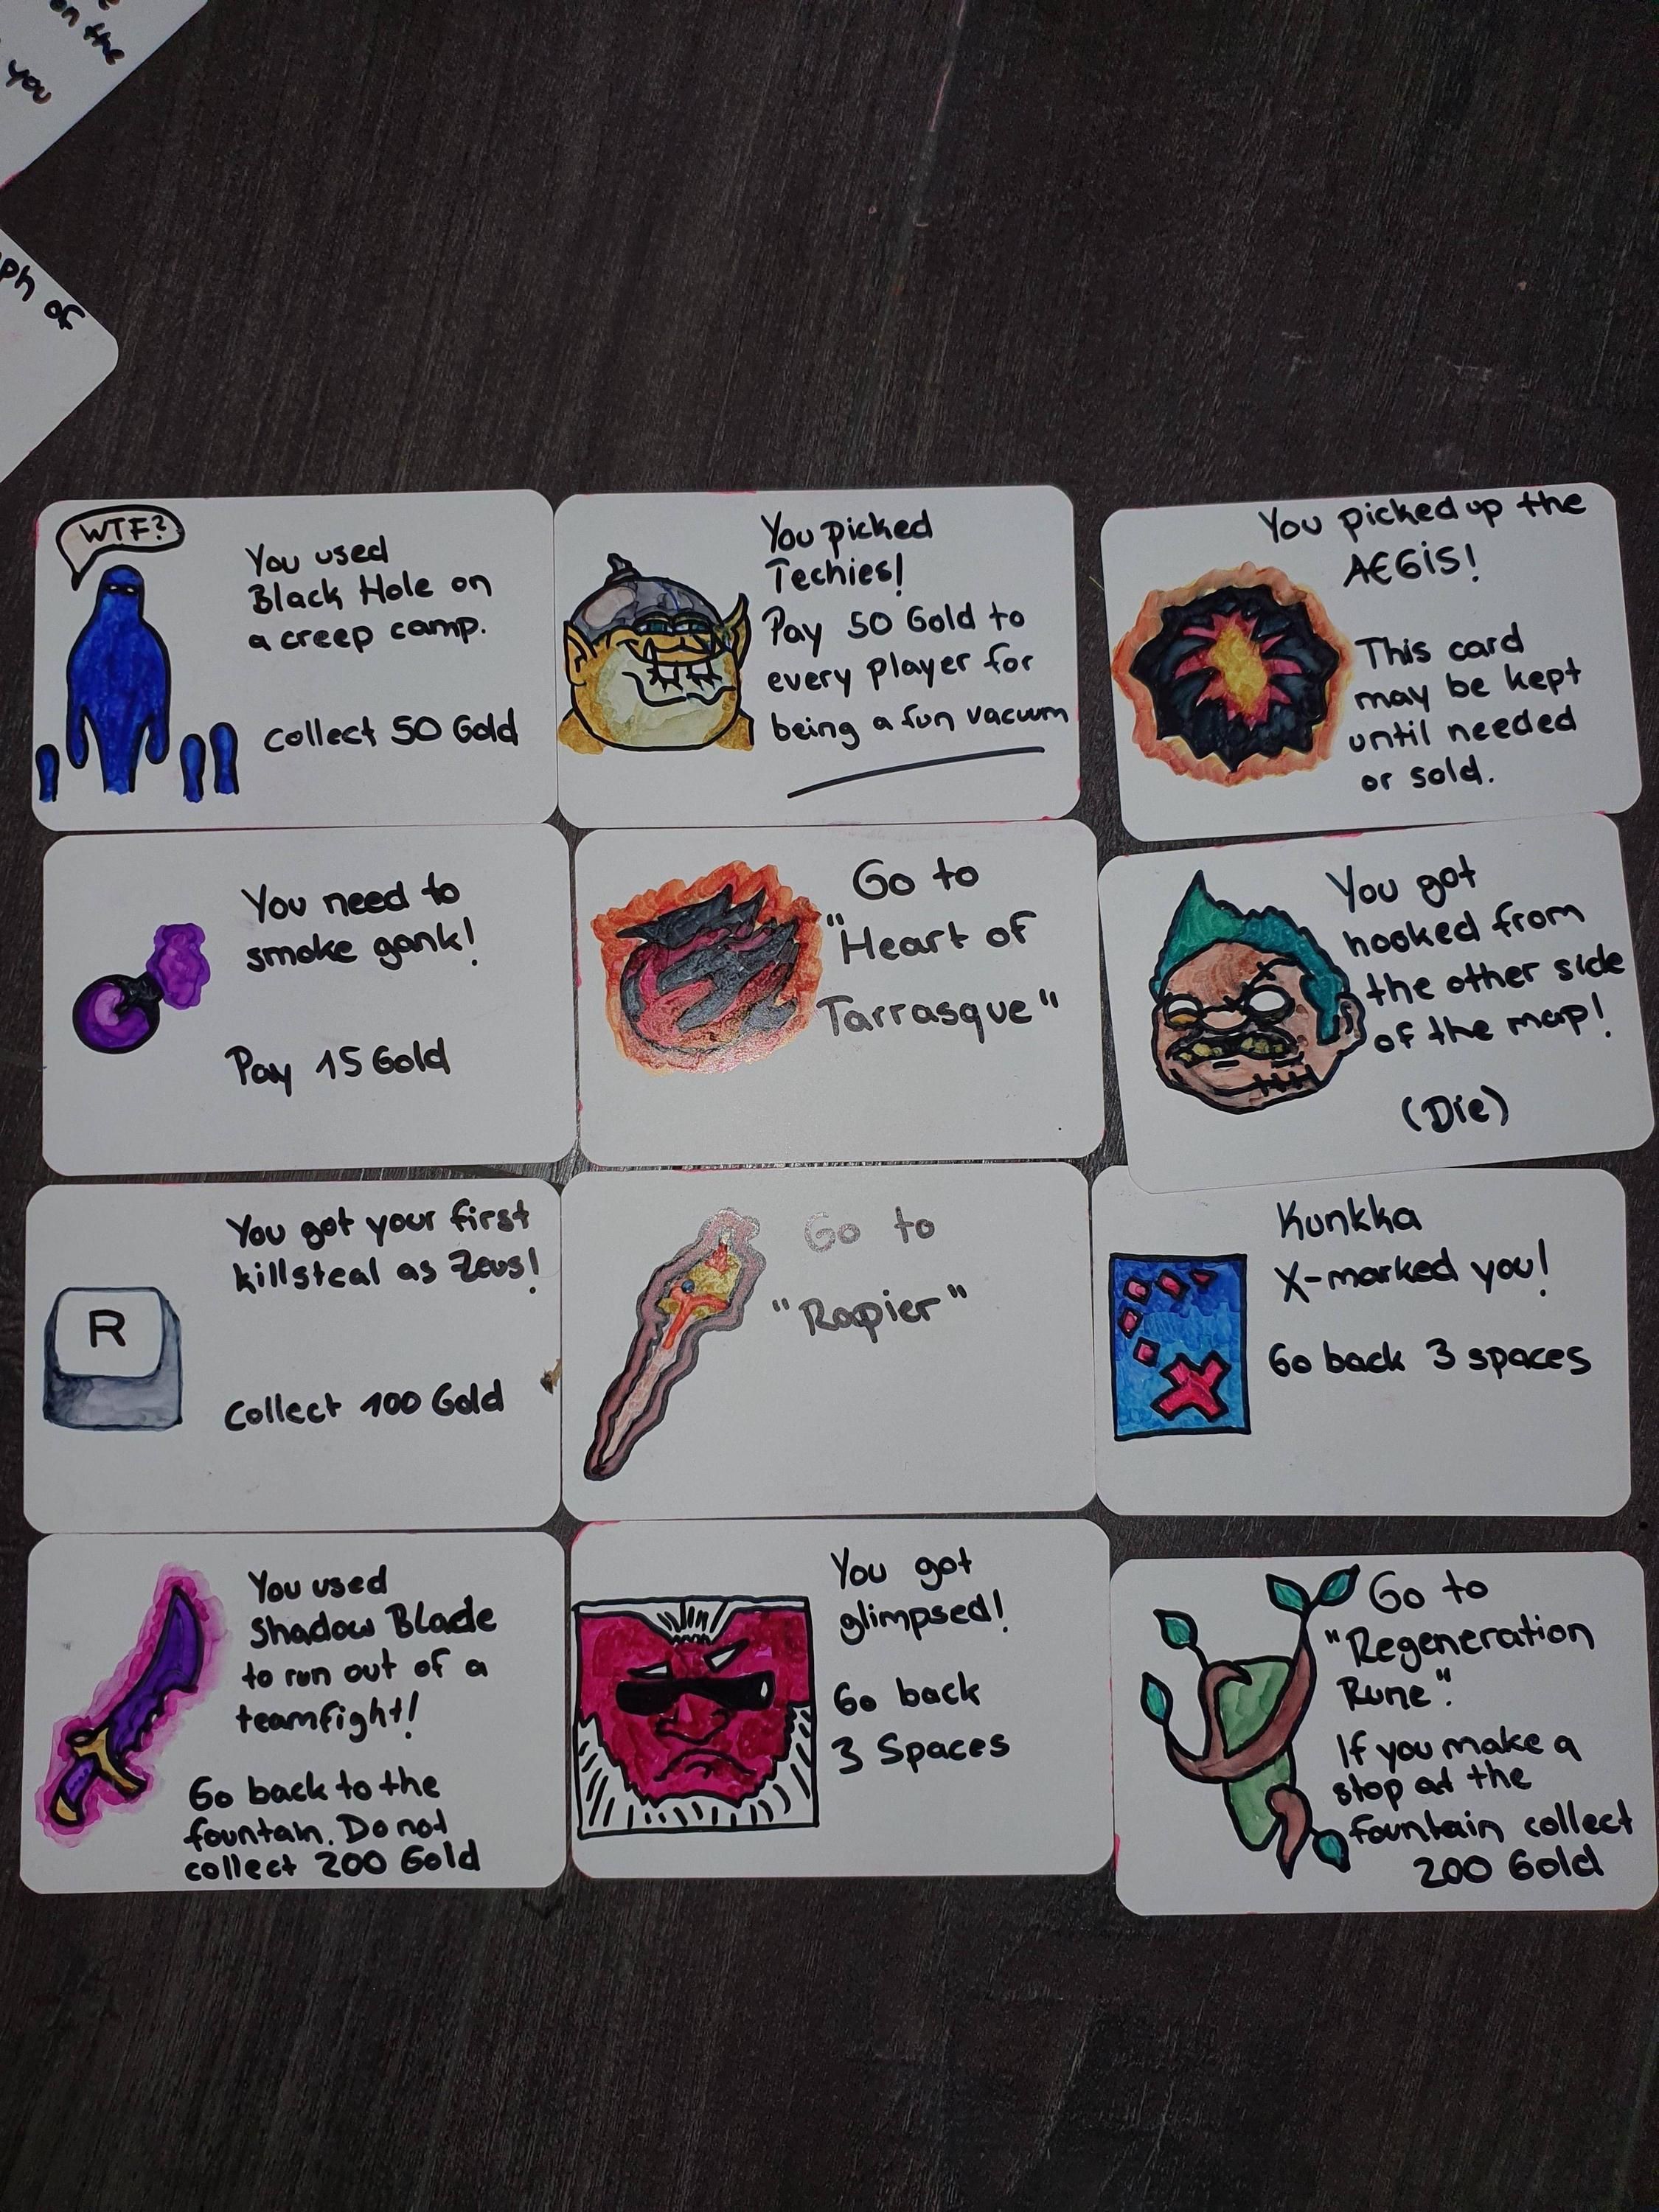 on the
you
ph of
WTF?
You used
Black Hole on
a creep camp.
Collect 50 Gold
You picked
Techies!
Pay 50 Gold to
every player for
being a fun vacuum
You picked up the
AEGIS!
This card
may be kept
until needed
or sold.
You need to
smoke gank!
Pay 15 Gold
Go to
"Heart of
Tarrasque"
You got
hooked from
the other side
of the map!
(Die)
You got your first
killsteal as Zeus!
R
Collect 100 Gold
Go to
"Rapier"
Kunkka
X-marked you!
Go back 3 spaces
You used
Shadow Blade
to run out of a
teamfight!
Go back to the
fountain. Do not
collect 200 Gold
You got
glimpsed!
Go back
3 Spaces
Go to
"Regeneration
Rune".
If you make a
stop at the
fountain collect
200 Gold